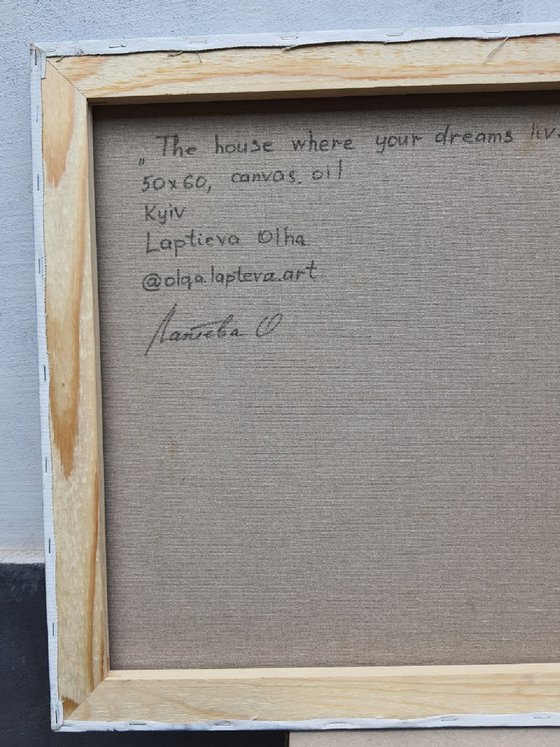 „ The house where your dreams liv
50x60, canvas. oil
Kyiv
Laptieva Olha
@olga.lapteva.art
Лаптева О